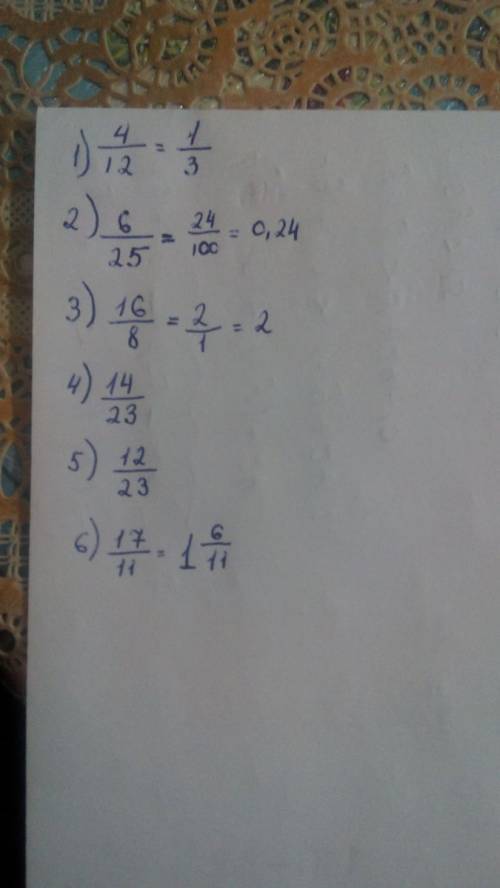 1) 4/12 = 1/3
2) 6/25 = 24/100 = 0,24
3) 16/8 = 2/1 = 2
4) 14/23
5) 12/23
6) 17/11 = 1 6/11